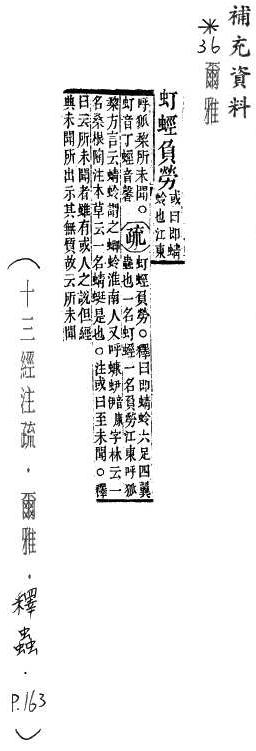 補充資料
*36 爾雅
虰蛵負勞 或曰即蜻
蛉也江東
呼狐棃所未聞○
虰音丁蛵音馨
疏
虰蛵負勞○釋曰即蜻蛉六足四翼
蟲也一名虰蛵一名負勞江東呼狐
棃方言云蜻蛉謂之蝍蛉淮南人又呼 字林云一
名桑根陶注本草云一名蜻蜓是也○注或曰至未聞○釋
曰云所未聞者雖有或人之說但經
典未聞所出示其無質故云所未聞
(十三經注疏．爾雅．釋蟲．P.163)